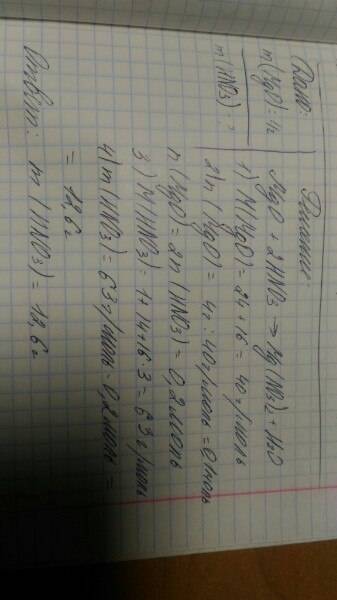 Дано:
m(MgO)=4г
m(HNO3)-?
Решение:
MgO + 2HNO3 → Mg(NO3)2 + H2O
1) M(MgO) = 24 + 16 = 40 г/моль
2) n(MgO) = 4г : 40 г/моль = 0,1 моль
n(MgO) = 2n(HNO3) = 0,2 моль
3) M(HNO3) = 1+14+16·3 = 63 г/моль
4) m(HNO3) = 63 г/моль · 0,2 моль =
= 12,6 г
Ответ: m(HNO3) = 12,6 г